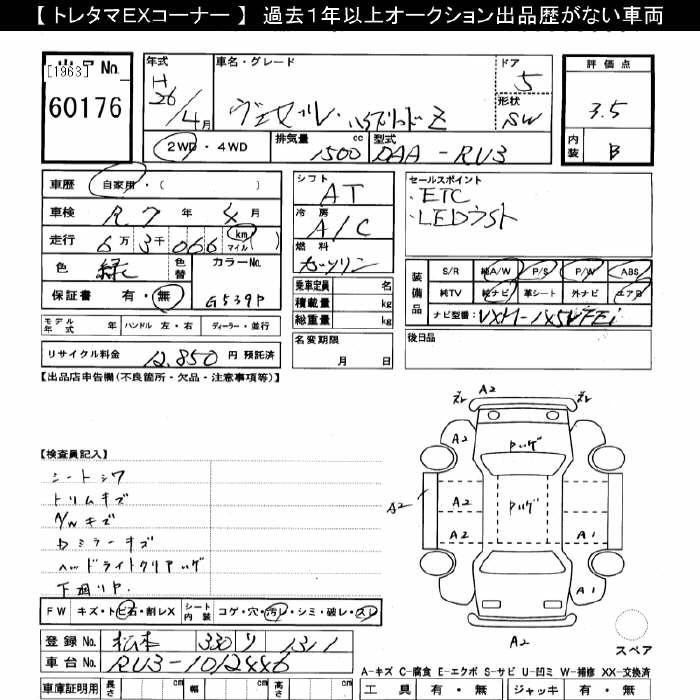 【 トレタマEXコーナー 】 過去1年以上オークション出品歴がない車両
[1963] No.
60176
年式
H
26/4月
車名・グレード
ヴェゼル・ハイブリッドZ
ドア
5
形状
SW
評価点
3.5
内装
B
2WD・4WD
排気量
1500 cc
型式
DAA-RU3
車歴 自家用・( )
車検 R7年4月
走行 6万3千066 km マイル ( )
色 緑 色替
カラーNo.
G539P
保証書 有・無
モデル年式 年 ハンドル 左・右 ディーラー・並行
リサイクル料金 12,850 円 預託済
シフト
AT
冷房
A/C
燃料
ガソリン
乗車定員 名
積載量 kg
総重量 kg
名変期限
月 日
セールスポイント
・ETC
・LEDライト
装備品
S/R 純A/W P/S P/W ABS
純TV 純ナビ 革シート 外ナビ エアB
ナビ型番: VXM-145VFEi
後日品
【出品店申告欄(不良箇所・欠品・注意事項等)】
【検査員記入】
シートシワ
トリムキズ
A/Wキズ
Dミラーキズ
ヘッドライトクリアハゲ
下廻りP.
A2
ズレ
ズレ
A2
A2
Pハゲ
A2
A2
Pハゲ
A2
A1
A1
A2
スペア
FW キズ・トビ石・割レX シート内装 コゲ・穴・汚レ・シミ・破レ・スレ
登録No. 松本 330 り 1311
車台No. RU3-1012446
車庫証明用 長さ cm 幅 cm 高さ cm
A-キズ C-腐食 E-エクボ S-サビ U-凹ミ W-補修 XX-交換済
工具 有・無 ジャッキ 有・無